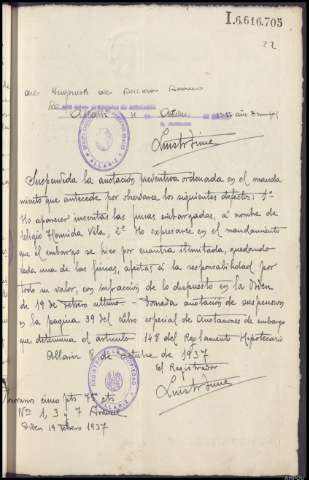 I.6.616.705
22
Allariz 8 de Octubre
Suspendida la anotación preventiva ordenada en el manda-
miento que antecede por observarse los siguientes defectos: 1º
No aparecer inscritas las fincas embargadas, a nombre de
Pelegio Homida Vila, 2º No expresarse en el mandamiento
que el embargo se hizo por cuantía ilimitada, quedando
cada una de las fincas, afectas a la responsabilidad por
todo su valor, con infracción de lo dispuesto en la Orden
de 19 de Febrero último - Tomada anotación de suspensión
en la página 39 del libro especial de Anotaciones de embargo
que determina el artículo 148 del Reglamento Hipotecario
Allariz 8 de Octubre de 1937
El Registrador
Honorarios cinco pts 95 cts
Nos 1, 3 y 7 Arancel
Orden 19 Febrero 1937